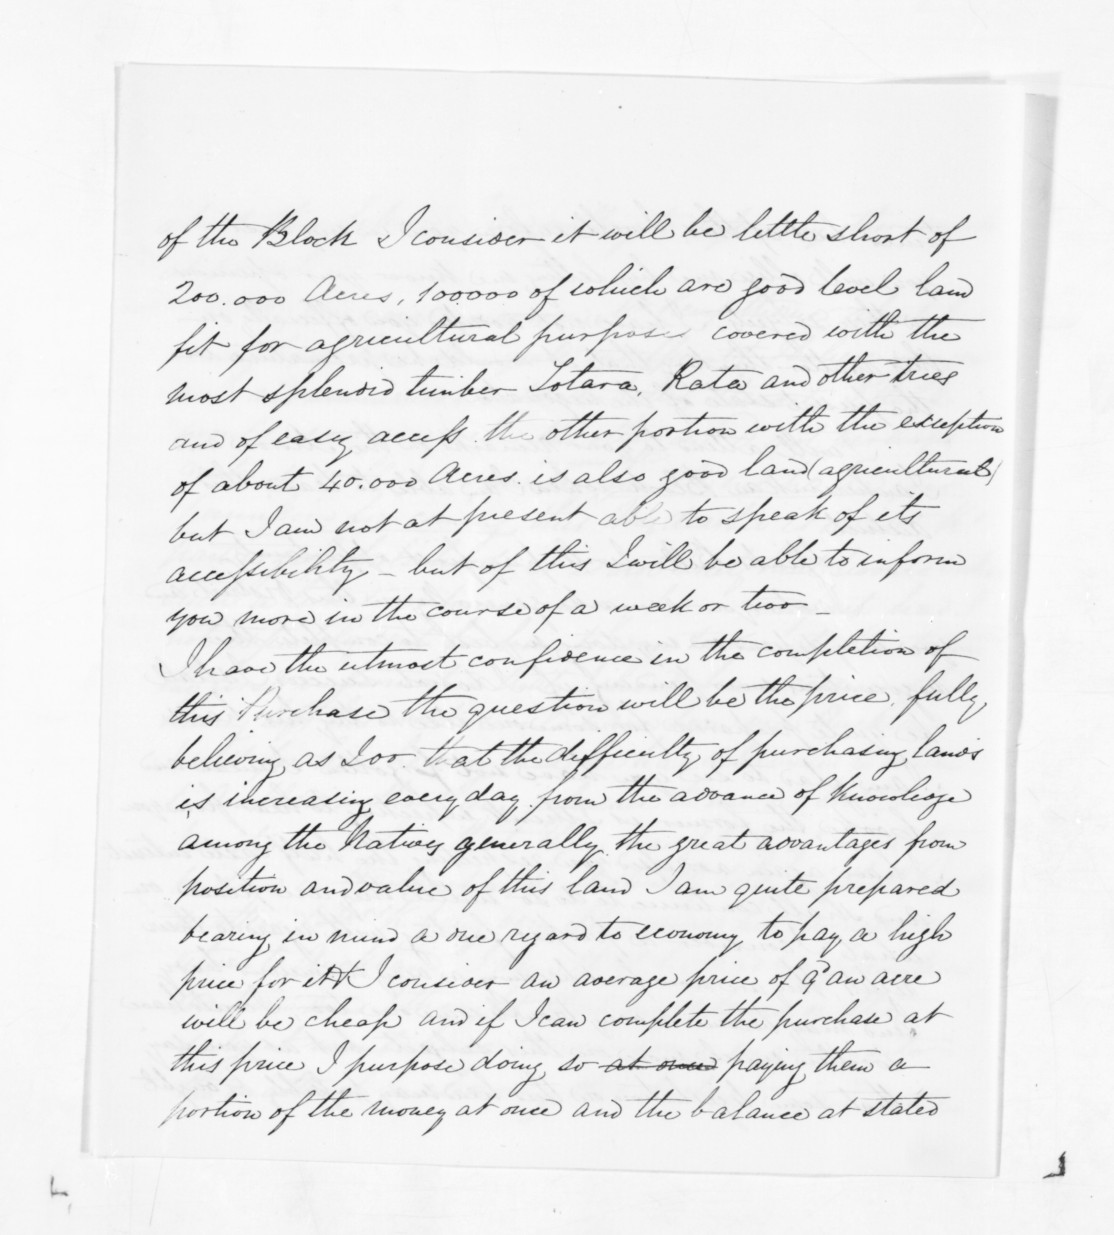 of the Block I consider it will be little short of
200.000 Acres, 100000 of which are good level land
fit for agricultural purposes covered with the
most splendid timber Totara, Rata and other trees
and of easy access the other portion with the exception
of about 40.000 Acres is also good land (agricultural)
but I am not at present able to speak of its
accessibility – but of this I will be able to inform
you more in the course of a week or two –
I have the utmost confidence in the completion of
this Purchase the question will be the price, fully
believing as I do that the difficulty of purchasing lands
is increasing every day from the advance of Knowledge
among the Natives generally, the great advantages from
position and value of this land I am quite prepared
bearing in mind a due regard to economy to pay a high
price for it & I consider an average price of an acre
will be cheap and if I can complete the purchase at
this price I purpose doing so at once paying them a
portion of the money at once and the balance at stated